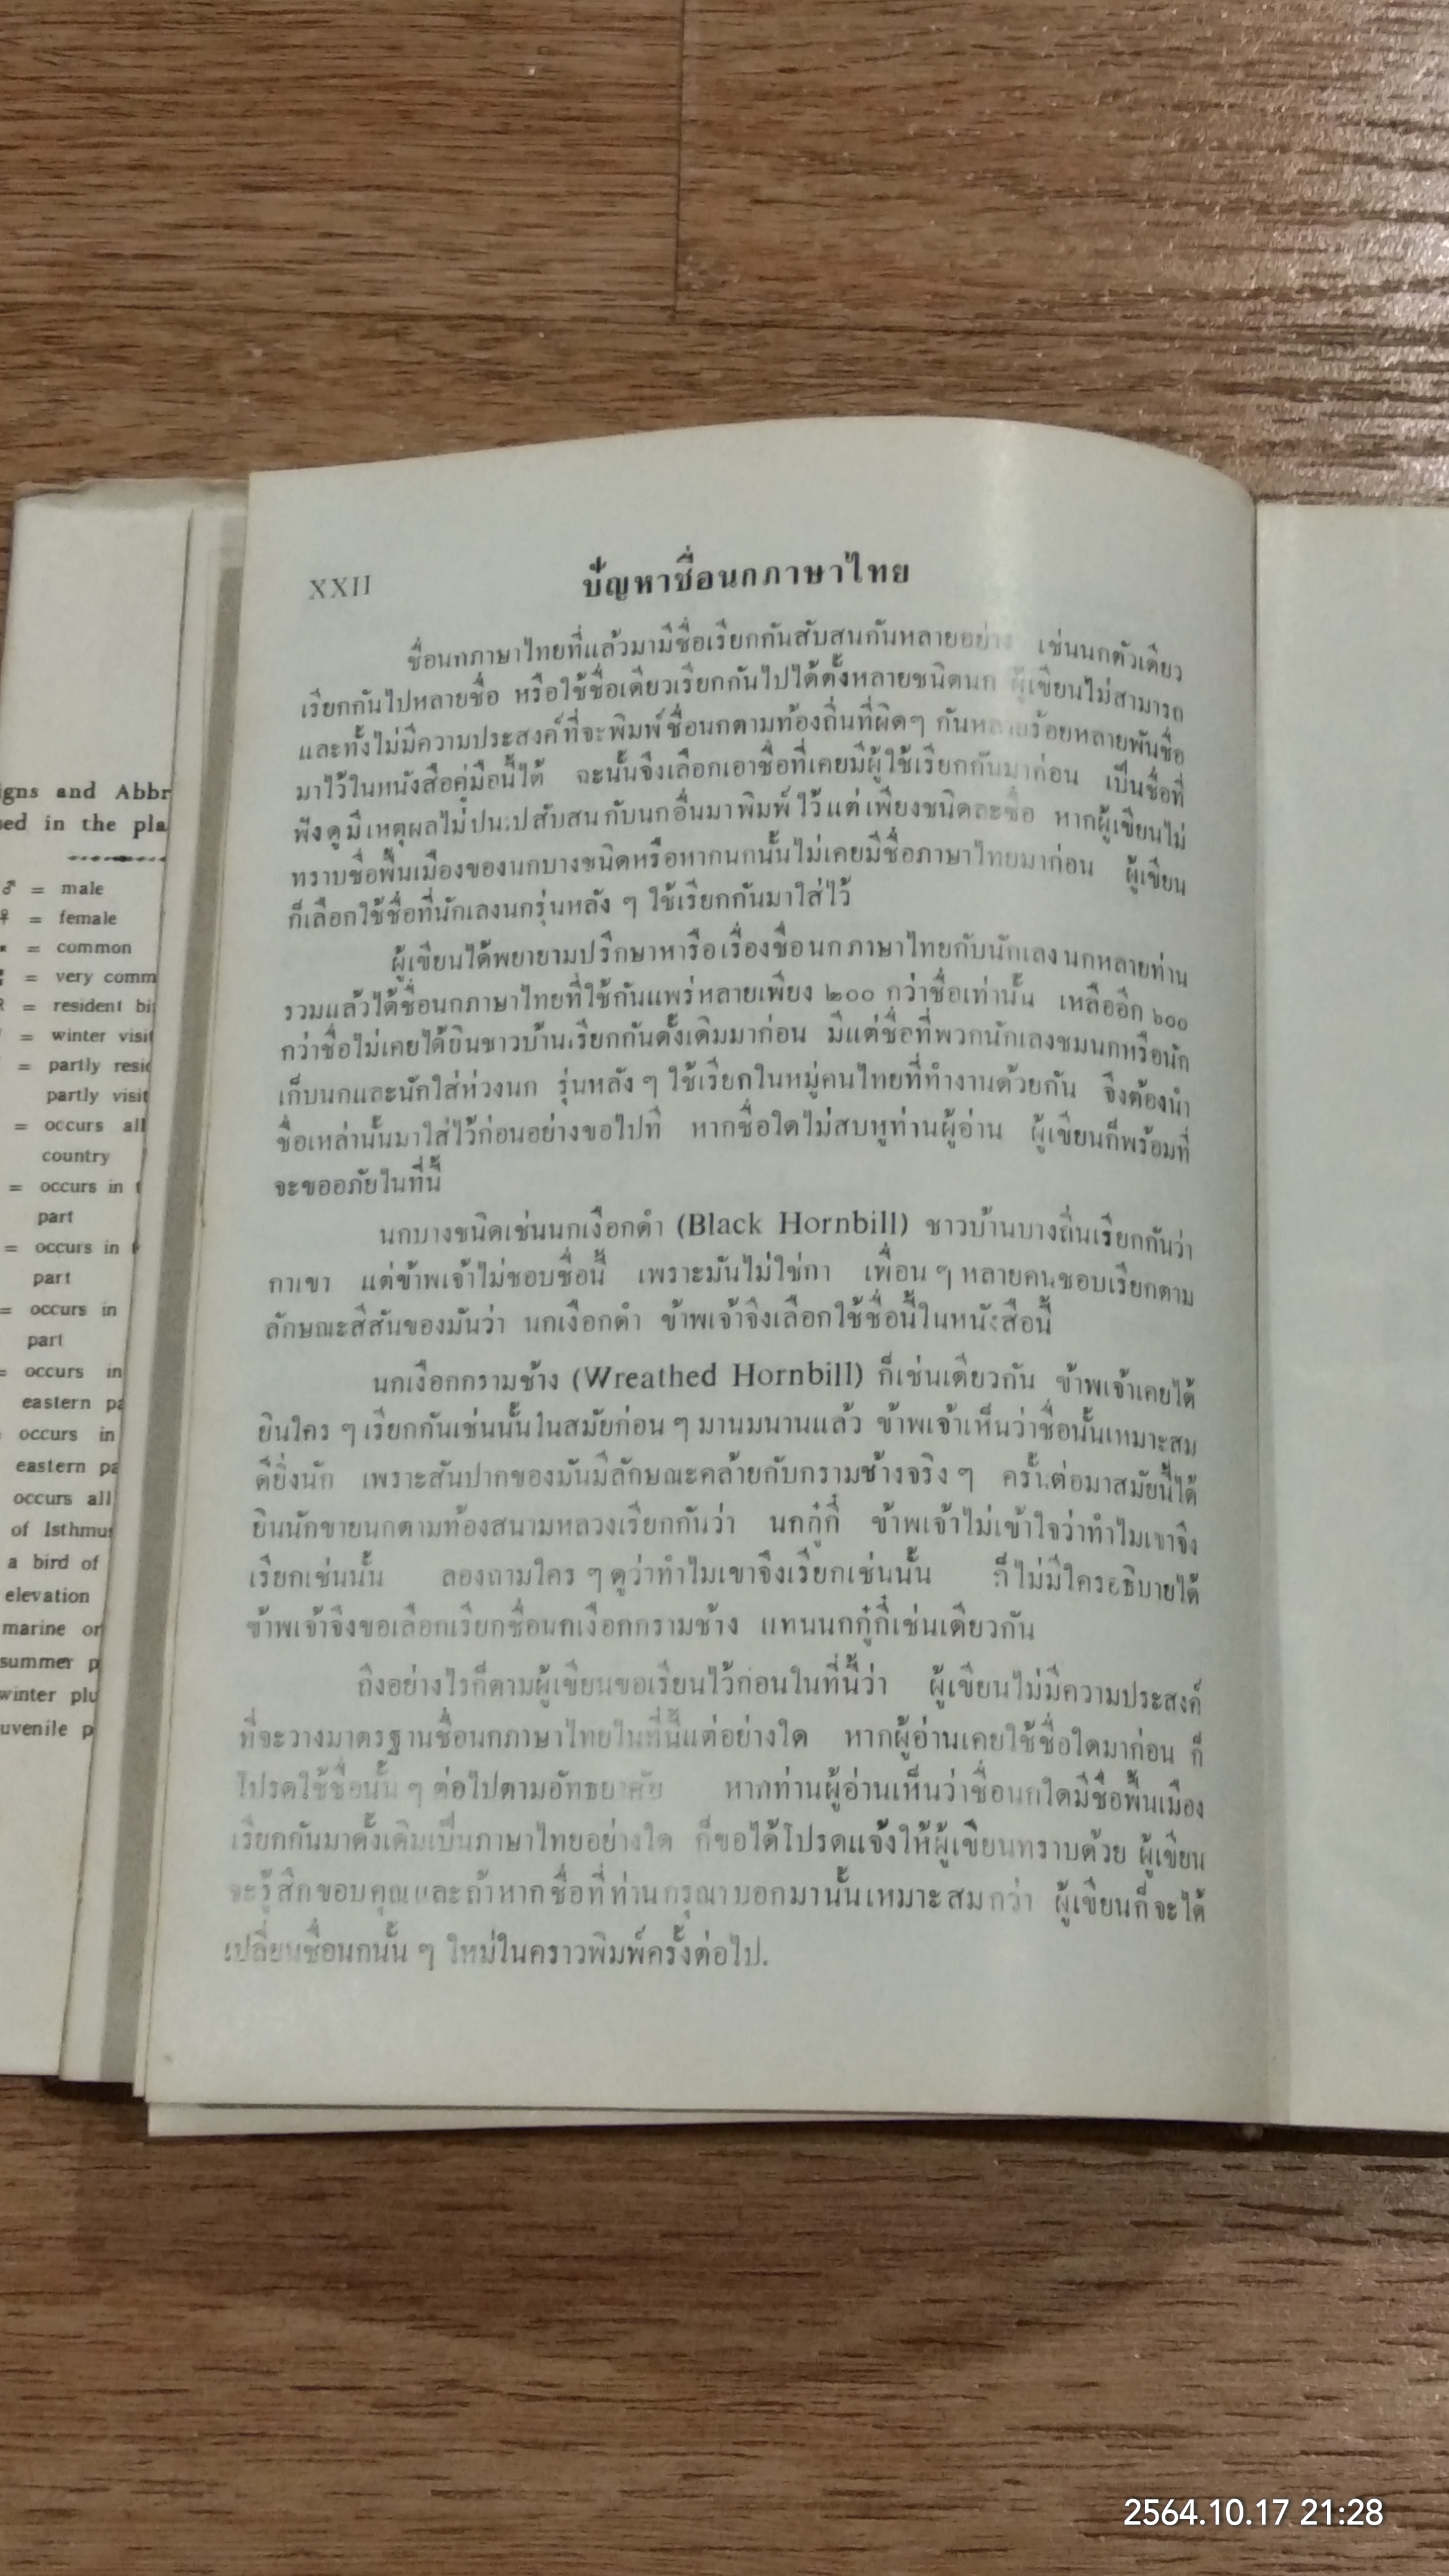 igns and Abbr
ed in the pla
♂ = male
♀ = female
= common
= very comm
= resident bi
= winter visit
= partly resid
partly visit
= occurs all
country
= occurs in
part
= occurs in
part
= occurs in
part
= occurs in
eastern pa
occurs in
eastern pa
occurs all
of Isthmus
a bird of
elevation
marine or
summer p
winter plu
uvenile p
XXII
ปัญหาชื่อนกภาษาไทย
ชื่อนกภาษาไทยที่แล้วมามีชื่อเรียกกันสับสนกันหลายอย่าง เช่นนกตัวเดียว
เรียกกันไปหลายชื่อ หรือใช้ชื่อเดียวเรียกกันไปได้ตั้งหลายชนิดนก ผู้เขียนไม่สามารถ
และทั้งไม่มีความประสงค์ที่จะพิมพ์ชื่อนกตามท้องถิ่นที่ผิดๆ กันหลายร้อยหลายพันชื่อ
มาไว้ในหนังสือคู่มือนี้ได้ ฉะนั้นจึงเลือกเอาชื่อที่เคยมีผู้ใช้เรียกกันมาก่อน เป็นชื่อที่
ฟังดูมีเหตุผลไม่ปนเปสับสนกับนกอื่นมาพิมพ์ไว้แต่เพียงชนิดละชื่อ หากผู้เขียนไม่
ทราบชื่อพื้นเมืองของนกบางชนิดหรือหากนกนั้นไม่เคยมีชื่อภาษาไทยมาก่อน ผู้เขียน
ก็เลือกใช้ชื่อที่นักเลงนกรุ่นหลัง ๆ ใช้เรียกกันมาใส่ไว้
ผู้เขียนได้พยายามปรึกษาหารือเรื่องชื่อนกภาษาไทยกับนักเลงนกหลายท่าน
รวมแล้วได้ชื่อนกภาษาไทยที่ใช้กันแพร่หลายเพียง ๒๐๐ กว่าชื่อเท่านั้น เหลืออีก ๖๐๐
กว่าชื่อไม่เคยได้ยินชาวบ้านเรียกกันดั้งเดิมมาก่อน มีแต่ชื่อที่พวกนักเลงชมนกหรือนัก
เก็บนกและนักใส่ห่วงนก รุ่นหลัง ๆ ใช้เรียกในหมู่คนไทยที่ทำงานด้วยกัน จึงต้องนำ
ชื่อเหล่านั้นมาใส่ไว้ก่อนอย่างขอไปที หากชื่อใดไม่สบหูท่านผู้อ่าน ผู้เขียนก็พร้อมที่
จะขออภัยในที่นี้
นกบางชนิดเช่นนกเงือกดำ (Black Hornbill) ชาวบ้านบางถิ่นเรียกกันว่า
กาเขา แต่ข้าพเจ้าไม่ชอบชื่อนี้ เพราะมันไม่ใช่กา เพื่อน ๆ หลายคนชอบเรียกตาม
ลักษณะสีสันของมันว่า นกเงือกดำ ข้าพเจ้าจึงเลือกใช้ชื่อนี้ในหนังสือนี้
นกเงือกกรามช้าง (Wreathed Hornbill) ก็เช่นเดียวกัน ข้าพเจ้าเคยได้
ยินใคร ๆ เรียกกันเช่นนั้นในสมัยก่อน ๆ มานมนานแล้ว ข้าพเจ้าเห็นว่าชื่อนั้นเหมาะสม
ดียิ่งนัก เพราะสันปากของมันมีลักษณะคล้ายกับกรามช้างจริง ๆ ครั้นต่อมาสมัยนี้ได้
ยินนักขายนกตามท้องสนามหลวงเรียกกันว่า นกกู๋กี๋ ข้าพเจ้าไม่เข้าใจว่าทำไมเขาจึง
เรียกเช่นนั้น ลองถามใคร ๆ ดูว่าทำไมเขาจึงเรียกเช่นนั้น ก็ไม่มีใครอธิบายได้
ข้าพเจ้าจึงขอเลือกเรียกชื่อนกเงือกกรามช้าง แทนนกกู๋กี๋เช่นเดียวกัน
ถึงอย่างไรก็ตามผู้เขียนขอเรียนไว้ก่อนในที่นี้ว่า ผู้เขียนไม่มีความประสงค์
ที่จะวางมาตรฐานชื่อนกภาษาไทยในที่นี้แต่อย่างใด หากผู้อ่านเคยใช้ชื่อใดมาก่อน ก็
โปรดใช้ชื่อนั้น ๆ ต่อไปตามอัทธยาศัย หากท่านผู้อ่านเห็นว่าชื่อนกใดมีชื่อพื้นเมือง
เรียกกันมาดั้งเดิมเป็นภาษาไทยอย่างใด ก็ขอได้โปรดแจ้งให้ผู้เขียนทราบด้วย ผู้เขียน
จะรู้สึกขอบคุณและถ้าหากชื่อที่ท่านกรุณาบอกมานั้นเหมาะสมกว่า ผู้เขียนก็จะได้
เปลี่ยนชื่อนกนั้น ๆ ใหม่ในคราวพิมพ์ครั้งต่อไป.
2564.10.17 21:28